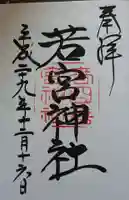 奉拝
若宮神社
平成二十九年十二月十六日